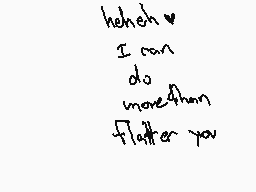 heheh ♥
I can
do
more than
flatter you